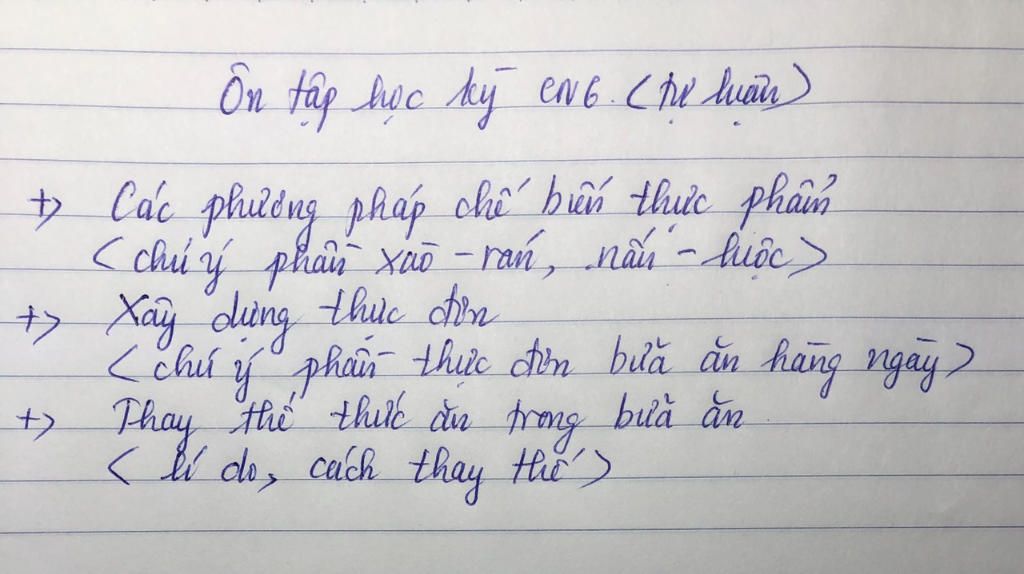 Ôn tập học kỳ CN6. (tự luận)
+> Các phương pháp chế biến thực phẩm
<chú ý phần xào - rán, nấu - luộc>
+> Xây dựng thực đơn
<chú ý phần thực đơn bữa ăn hàng ngày>
+> Thay thế thức ăn trong bữa ăn
< lí do, cách thay thế>